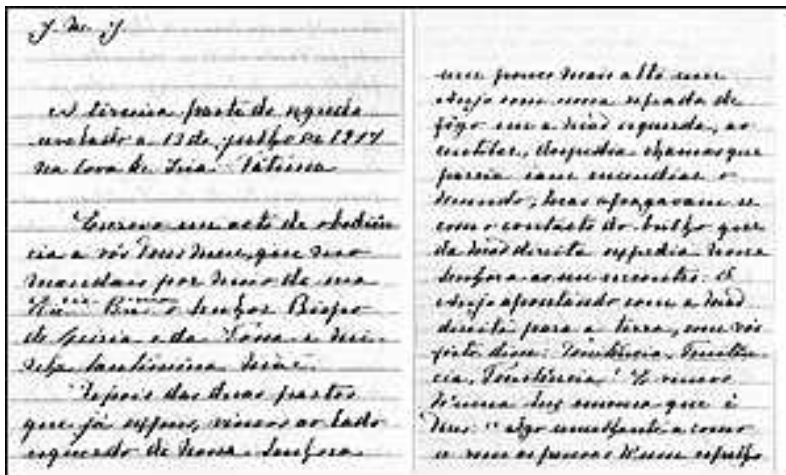 J. M. J.
A terceira parte do segredo
revelado a 13 de julho de 1917
na Cova de Iria - Fátima
Escrevo em acto de obediên
cia a vós Deus meu, que mo
mandais por meio de sua
Ex.cia Rev.ma o Senhor Bispo
de Leiria e da Vossa e mi
nha Santíssima Mãe.
Depois das duas partes
que já expus, vimos ao lado
esquerdo de Nossa Senhora
um pouco mais alto um
Anjo com uma espada de
fôgo em a mão esquerda, ao
cintilar, despedia chamas que
parecia iam encendiar o
mundo; mas apagavam-se
com o contacto do brilho que
da mão direita expedia Nossa
Senhora ao seu encontro: O
Anjo apontando com a mão
direita para a terra, com voz
forte disse: Penitência, Penitên
cia, Penitência! E vimos
n'uma luz emensa que é
Deus: "algo semelhante a como
se vêm as pessoas n'um espelho